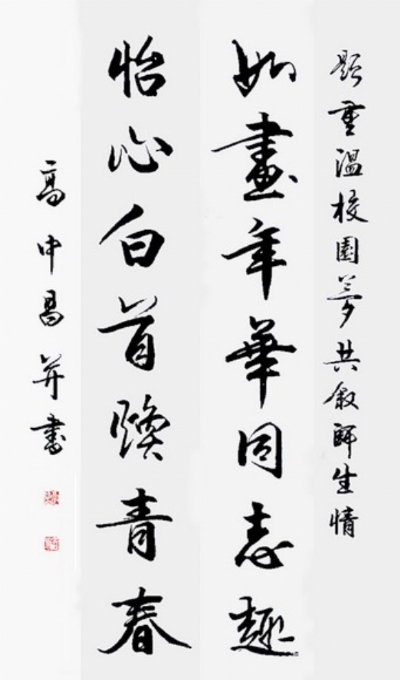 題重溫校園夢共叙師生情
如畫年華同志趣
怡心白首煥青春
高中昌并書